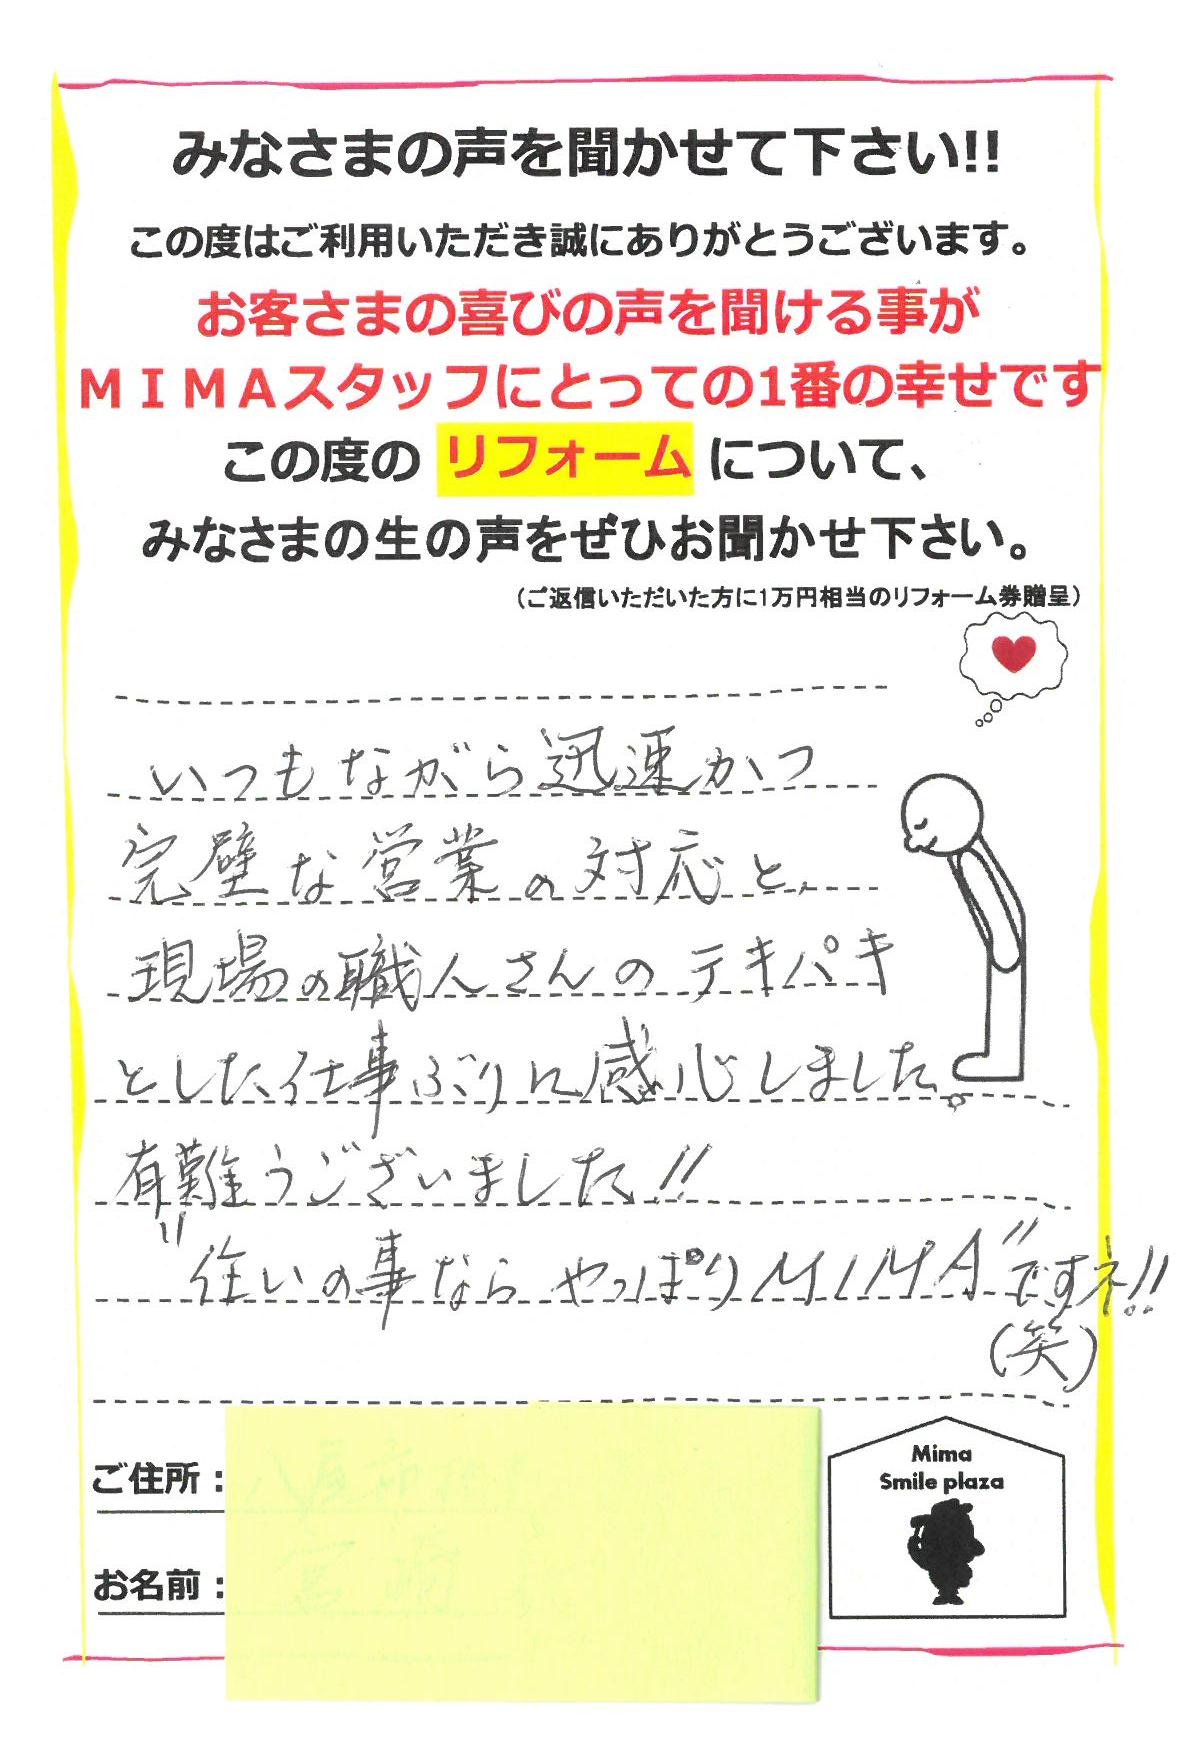 みなさまの声を聞かせて下さい!!
この度はご利用いただき誠にありがとうございます。
お客さまの喜びの声を聞ける事が
ＭＩＭＡスタッフにとっての1番の幸せです
この度の リフォーム について、
みなさまの生の声をぜひお聞かせ下さい。
（ご返信いただいた方に1万円相当のリフォーム券贈呈）
いつもながら迅速かつ
完璧な営業の対応と、
現場の職人さんのテキパキ
とした仕事ぶりに感心しました。
有難うございました!!
"住いの事ならやっぱりMIMA"ですネ!!
(笑)
ご住所：
お名前：
Mima
Smile plaza